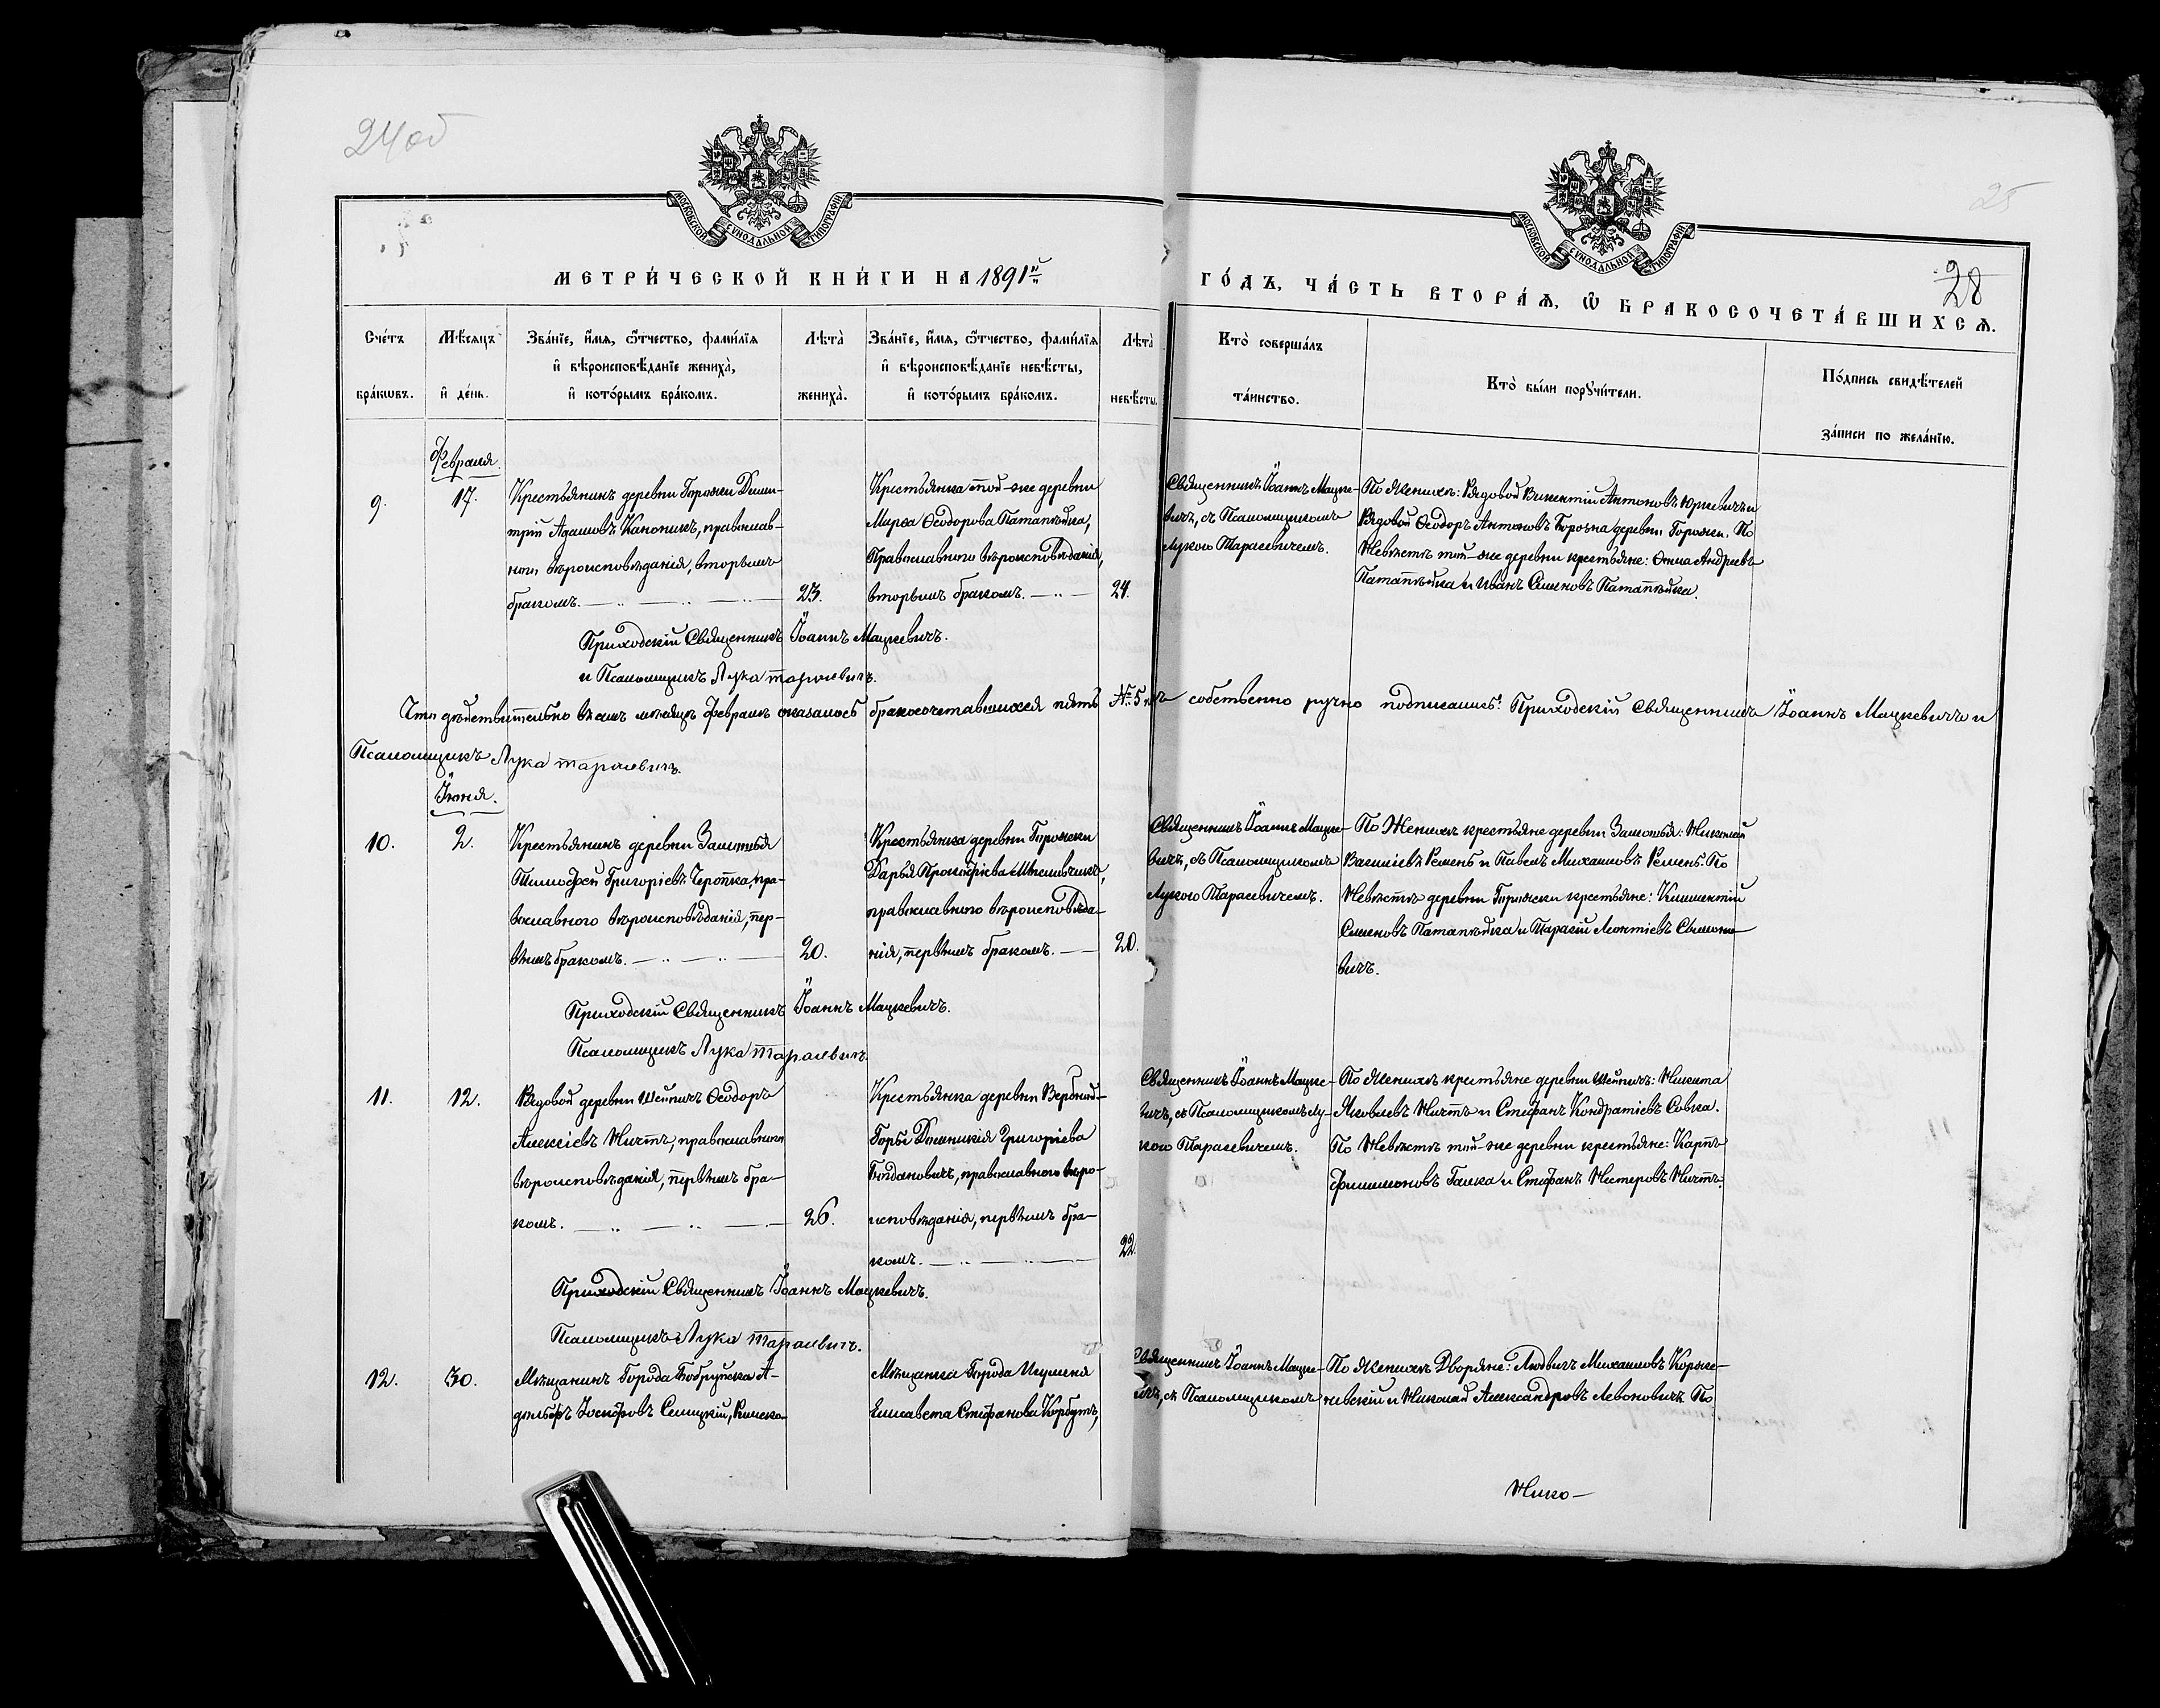 24об
МОСКОВСКОЙ СѴНОДАЛЬНОЙ ТИПОГРАФІИ
МОСКОВСКОЙ СѴНОДАЛЬНОЙ ТИПОГРАФІИ
25
28
МЕТРИ́ЧЕСКОЙ КНИ́ГИ НА 1891й
ГО́ДЪ, ЧА́СТЬ ВТОРА́Ѧ, Ѡ҆ БРАКОСОЧЕТА́ВШИХСѦ.
Сче́тъ бра́кѡвъ.
Мѣ́сѧцъ и҆ де́нь.
Зва́нїе, и҆́мѧ, ѻ҆́тчество, фами́лїѧ
и҆ вѣроисповѣ́данїе жениха̀,
и҆ кото́рымъ бра́комъ.
Лѣта̀ жениха̀.
Зва́нїе, и҆́мѧ, ѻ҆́тчество, фами́лїѧ
и҆ вѣроисповѣ́данїе невѣ́сты,
и҆ кото́рымъ бра́комъ.
Лѣта̀ невѣ́сты.
Кто̀ соверша́лъ
та́инство.
Кто̀ бы́ли порꙋчи́тели.
По́дпись свидѣ́телей
за́писи по жела́нїю.
Февраля.
9.
17.
Крестьянинъ деревни Горожи Дими-
трій Адамовъ Каноникъ, православ-
наго вѣроисповѣданія, вторымъ
бракомъ.
23.
Крестьянка той-же деревни
Марѳа Ѳеодорова Патапѣйка,
Православного вѣроисповѣданія,
вторымъ бракомъ.
24.
Священникъ Іоаннъ Мацке-
вичъ, съ Псаломщикомъ
Лукою Тарасевичемъ.
По Женихѣ: Рядовой Викентій Антоновъ Юркевичъ и
Рядовой Ѳеодоръ Антоновъ деревни Горожи. По
Невѣстѣ той-же деревни крестьяне: Ѳома Андреевъ
Патапѣйка и Иванъ Семеновъ Патапѣйка.
Приходскій Священникъ Іоаннъ Мацкевичъ.
и Псаломщикъ Лука Тарасевичъ.
Что дѣйствительно въ семъ мѣсяцѣ Февралѣ оказалось бракосочетавшихся пять № 5 въ собственно ручно подписались: Приходскій Священникъ Іоаннъ Мацкевичъ и
Псаломщикъ Лука Тарасевичъ.
Іюня.
10.
2.
Крестьянинъ деревни Замошья
Тимофей Григоріевъ Черопка, пра-
вославного вѣроисповѣданія, пер-
вымъ бракомъ.
20.
Крестьянка деревни Горожи
Дарья Прокофіева
православного вѣроисповѣда-
нія, первымъ бракомъ.
20.
Священникъ Іоаннъ Мацке-
вичъ, съ Псаломщикомъ
Лукою Тарасевичемъ.
По Женихѣ крестьяне деревни Замошья: Николай
Василіевъ Ремень и Павелъ Михаиловъ Ремень. По
Невѣстѣ деревни Горожи крестьяне: Климентій
Семеновъ Патапѣйка и Тарасій Леонтіевъ
вичъ.
Приходскій Священникъ Іоаннъ Мацкевичъ.
Псаломщикъ Лука Тарасевичъ
11.
12.
Рядовой деревни Шейпичъ Ѳеодоръ
Алексіевъ православного
вѣроисповѣданія, первымъ бра-
комъ.
26.
Крестьянка деревни Вербной-
Горы Домникія Григоріева
Богдановичъ, православного вѣро-
исповѣданія, первымъ бра-
комъ.
22.
Священникъ Іоаннъ Мацке-
вичъ, съ Псаломщикомъ Лу-
кою Тарасевичемъ.
По Женихѣ крестьяне деревни Шейпичъ: Никита
Яковлевъ и Стефанъ Кондратіевъ Савка.
По Невѣстѣ той-же деревни крестьяне: Карпъ
Филимоновъ Галка и Стефанъ Нестеровъ
Приходскій Священникъ Іоаннъ Мацкевичъ.
Псаломщикъ Лука Тарасевичъ.
12.
30.
Мѣщанинъ Города Бобруйска А-
дольфъ Іосифовъ Римско
Мѣщанка Города Игумена
Елисавета Стефанова Корбутъ,
Священникъ Іоаннъ Мацке-
вичъ, съ Псаломщикомъ
По Женихѣ Дворяне: Людвигъ Михаиловъ Корже-
невскій и Николай Александровъ Левоновичъ. По